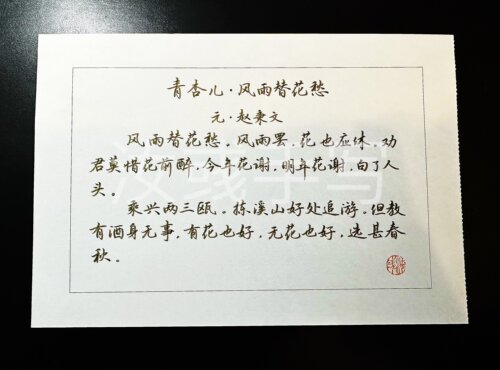 青杏儿·风雨替花愁
元·赵秉文
风雨替花愁。风雨罢，花也应休，劝
君莫惜花前醉，今年花谢，明年花谢，白了人
头。
乘兴两三瓯。拣溪山好处追游。但教
有酒身无事，有花也好，无花也好，选甚春
秋。